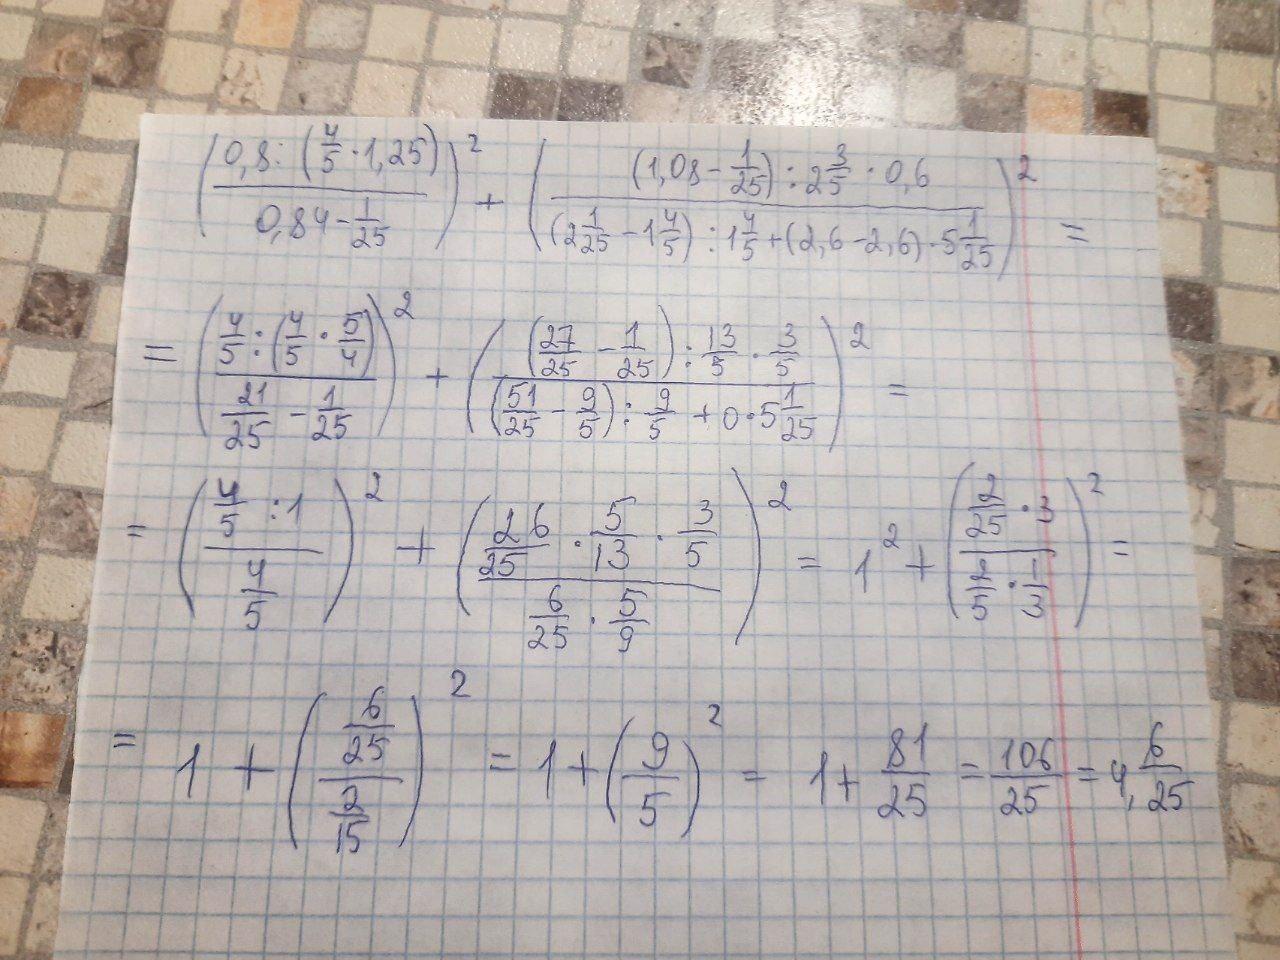 (0,8 : (4/5 · 1,25) / 0,84 - 1/25)² + ((1,08 - 1/25) : 2 3/5 · 0,6 / (2 1/25 - 1 4/5) : 1 4/5 + (2,6 - 2,6) · 5 1/25)² =
= (4/5 : (4/5 · 5/4) / 21/25 - 1/25)² + ((27/25 - 1/25) : 13/5 · 3/5 / (51/25 - 9/5) : 9/5 + 0 · 5 1/25)² =
= (4/5 : 1 / 4/5)² + (26/25 · 5/13 · 3/5 / 6/25 · 5/9)² = 1² + (2/25 · 3 / 2/5 · 1/3)² =
= 1 + (6/25 / 2/15)² = 1 + (9/5)² = 1 + 81/25 = 106/25 = 4, 6/25